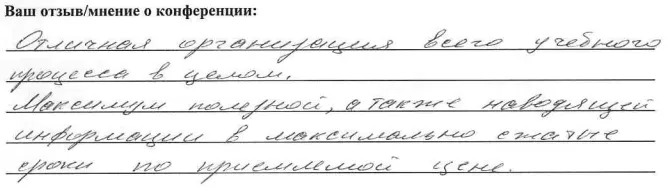 Ваш отзыв/мнение о конференции:
Отличная организация всего учебного
процесса в целом.
Максимум полезной, а также наводящей
информации в максимально сжатые
сроки по приемлемой цене.